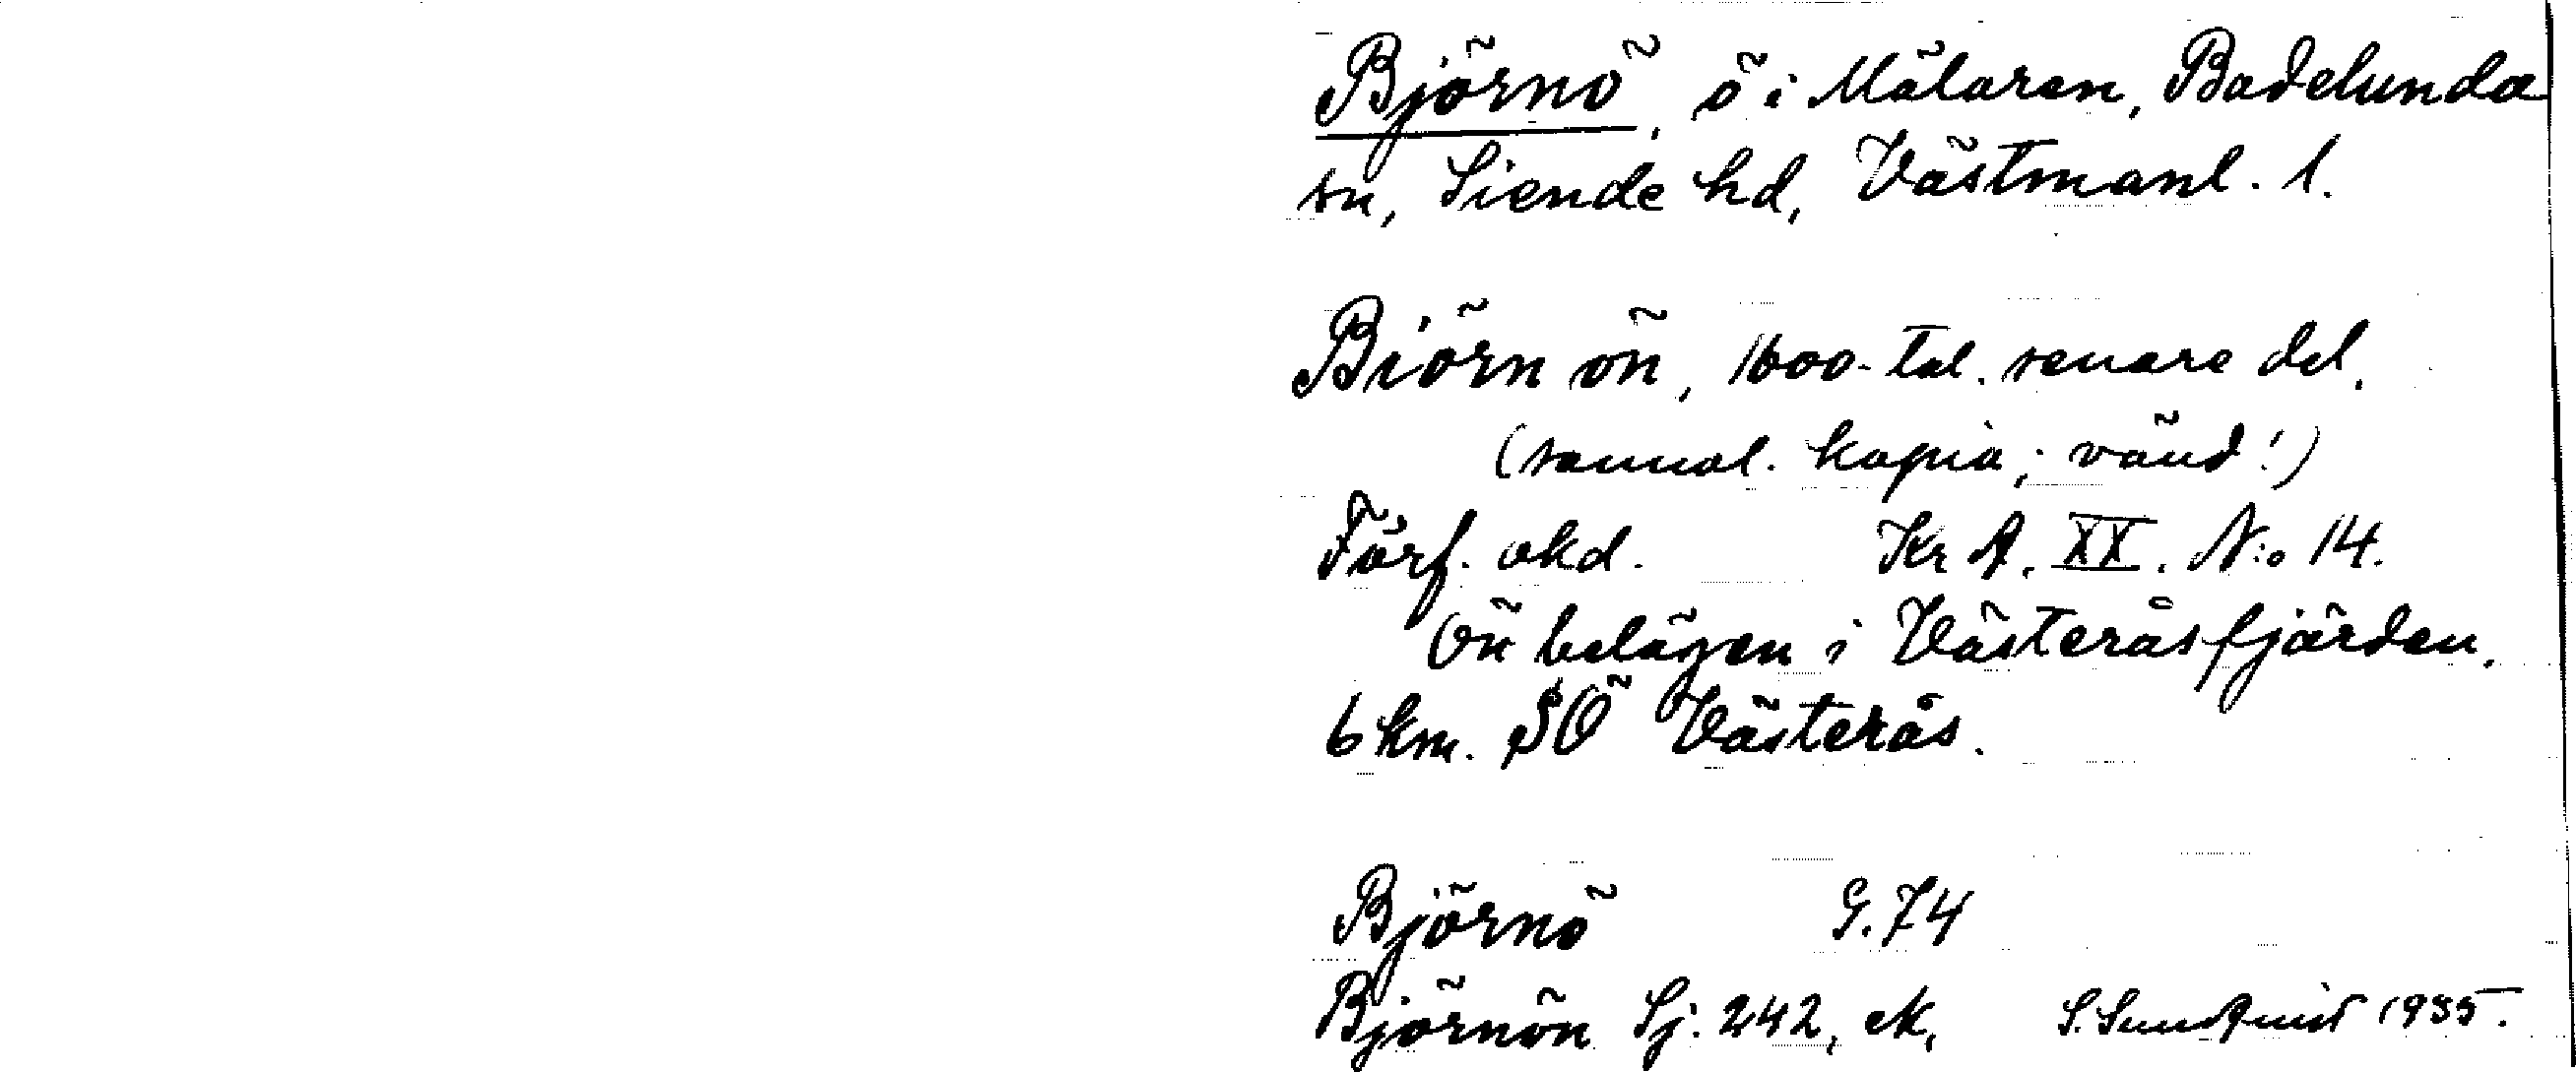 Björnö, ö i Mälaren, Badelunda
sn, Siende hd, Västmanl. l.
Biörn ön, 1600-tal. senare del.
(sannol. kopia; vänd!)
Förf. okd. Kr A. XX. N:o 14.
Ön belägen i Västeråsfjärden,
6 km. SÖ Västerås.
Björnö G. 74
Björnön Sj. 242, ek, S. Sundquist 1935.